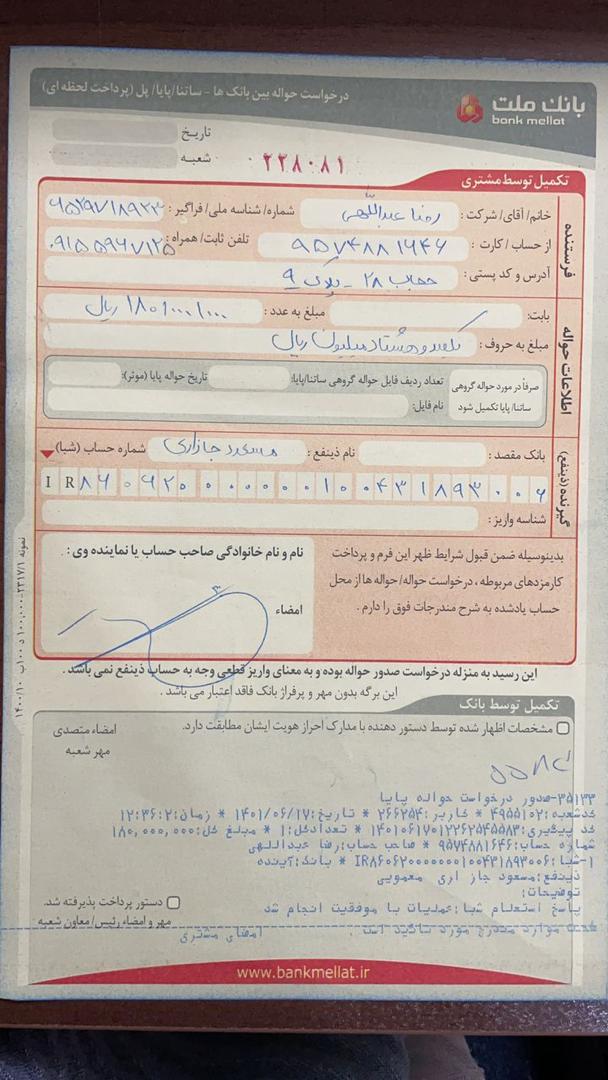 درخواست حواله بین بانک ها - ساتنا/پایا/ پل (پرداخت لحظه ای)
بانک ملت
bank mellat
تاریخ
شعبه
۲۲۸۰۸۱
تکمیل توسط مشتری
فرستنده
خانم/ آقای/ شرکت : رضا عبداللهی شماره/ شناسه ملی/ فراگیر :
از حساب / کارت : ۹۵۷۴۸۸۱۶۴۶ تلفن ثابت/ همراه : ۰۹۱۵۵۹۶۷۱۲۵
آدرس و کد پستی : حجاب ۲۸ - پلاک ۹
اطلاعات حواله
بابت : مبلغ به عدد : ۱۸۰/۰۰۰/۰۰۰ ریال
مبلغ به حروف : یکصد و هشتاد میلیون ریال
صرفاً در مورد حواله گروهی ساتنا/ پایا تکمیل شود
تعداد ردیف فایل حواله گروهی ساتنا/پایا: تاریخ حواله پایا (موثر):
نام فایل:
گیرنده (ذینفع)
بانک مقصد : نام ذینفع : مسعود جازاری شماره حساب (شبا)
IR۸۶۰۶۲۰۰۰۰۰۰۰۱۰۰۴۳۱۸۹۳۰۰۶
شناسه واریز :
بدینوسیله ضمن قبول شرایط ظهر این فرم و پرداخت
کارمزدهای مربوطه ، درخواست حواله/ حواله ها از محل
حساب یادشده به شرح مندرجات فوق را دارم .
نام و نام خانوادگی صاحب حساب یا نماینده وی :
امضاء
این رسید به منزله درخواست صدور حواله بوده و به معنای واریز قطعی وجه به حساب ذینفع نمی باشد .
این برگه بدون مهر و پرفراژ بانک فاقد اعتبار می باشد .
تکمیل توسط بانک
مشخصات اظهار شده توسط دستور دهنده با مدارک احراز هویت ایشان مطابقت دارد.
امضاء متصدی
مهر شعبه
۳۵۱۳۳-صدور درخواست حواله پایا
کدشعبه:۴۹۵۵۱۰۲ * کاربر:۲۶۶۲۵۴ * تاریخ:۱۴۰۱/۰۶/۱۷ * زمان:۱۲:۳۶:۲
کد پیگیری:۱۴۰۱۰۶۱۷۰۱۲۲۶۲۵۴۵۵۸۳ * تعدادکل:۱ * مبلغ کل:۱۸۰,۰۰۰,۰۰۰
شماره حساب:۹۵۷۴۸۸۱۶۴۶ * صاحب حساب:رضا عبداللهی
۱-شبا:IR۸۶۰۶۲۰۰۰۰۰۰۰۱۰۰۴۳۱۸۹۳۰۰۶ * بانک:آینده
ذینفع:مسعود جاز اری معمویی
توضیحات:
پاسخ استعلام شبا:عملیات با موفقیت انجام شد
صحت موارد مندرج مورد تائید است . امضای مشتری
دستور پرداخت پذیرفته شد.
مهر و امضاء رئیس/ معاون شعبه
www.bankmellat.ir
نمونه ۲۳۱۷/۱